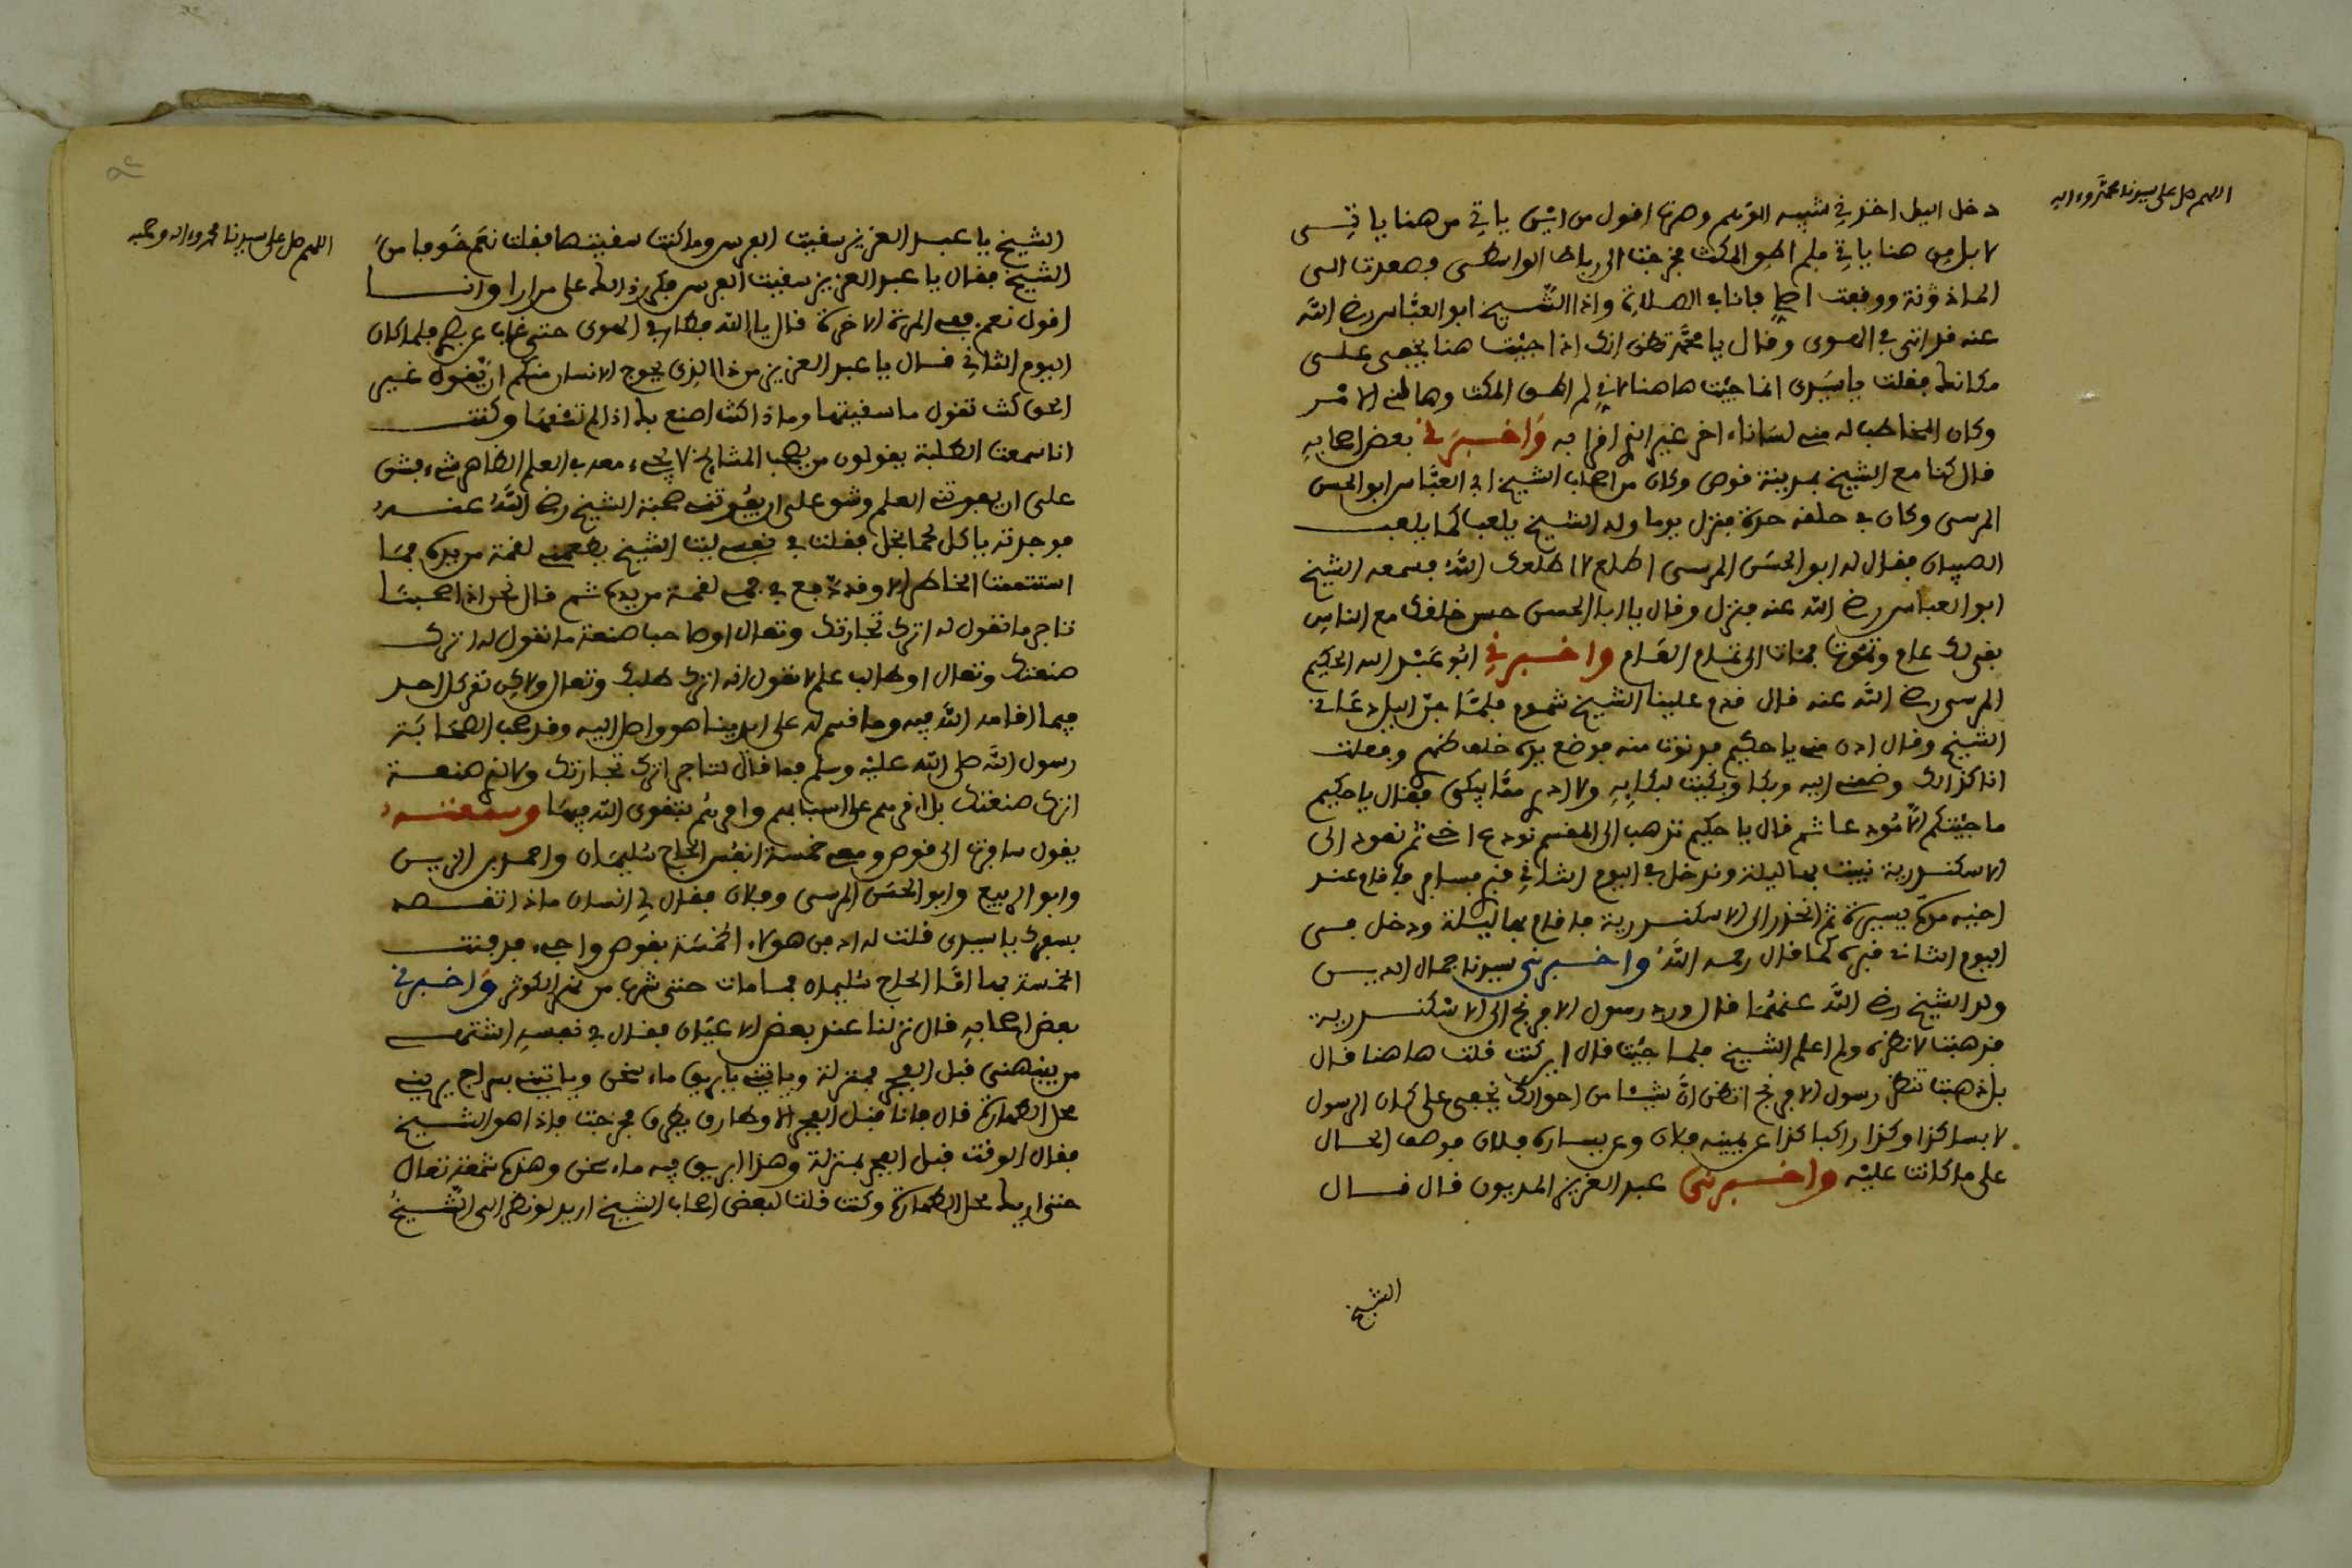 اللهم صل على سيدنا محمد وءاله
دخل اليل اخذني شبيه الوهم وصرت اقول من اين ياتي من هنا ياتي
لا بل من هنا ياتي فلم اطق المكث فخرجت الى رباط الواسطي وصعدت الى
الماذونة ووقفت اصلي فانا في الصلاة واذا الشيخ ابو العباس رضي الله
عنه قد اتى في الهوى وقال يا محمد تظن انك اذا جيت هنا يخفى على
مكانك فقلت يا سيدي انما جيت هاهنا لاني لم اطق المكث وهالني الامر
وكان المخاطب له مني لسانا ءاخر غير اني اقرا به واخبرني بعض اصحابه
قال كنا مع الشيخ بمدينة قوص وكان من اصحاب الشيخ ابي العباس ابو الحسن
المرسي وكان في خلقه حدة فنزل يوما ولد الشيخ يلعب كما يلعب
الصبيان فقال له ابو الحسن المرسي اطلع لا اطلعك الله فسمعه الشيخ
ابو العباس رضي الله عنه فنزل وقال يا ابا الحسن حسن خلقك مع الناس
بقي لك عام وتموت فمات الى تمام العام واخبرني ابو عبد الله الحكيم
المرسي رضي الله عنه قال قدم علينا الشيخ شموم فلما جن اليل دعاني
الشيخ وقال ادن مني يا حكيم فدنوت منه فوضع يده خلف ظهري وفعلت
انا كذلك وضمني اليه وبكا وبكيت لبكايه ولا ادري مما يبكي فقال يا حكيم
ما جيتكم الا مودعا ثم قال يا حكيم نذهب الى المقسم نودع اخي ثم نعود الى
الاسكندرية نبيت بها ليلة وندخل في اليوم الثاني قبري فسافر فاقام عند
اخيه مدة يسيرة ثم انحدر الى الاسكندرية فاقام بها ليلة ودخل في
اليوم الثاني قبره كما قال رحمه الله واخبرني سيدنا جمال الدين
ولد الشيخ رضي الله عنهما قال ورد رسول الافرنج الى الاسكندرية
فذهبت لانظره ولم اعلم الشيخ فلما جيت قال اين كنت قلت هاهنا قال
بل ذهبت تنظر رسول الافرنج اتظن ان شيئا من احوالك يخفى على كان الرسول
لابسا كذا وكذا راكبا كذا عن يمينه فلان وعن يساره فلان فوصف الحال
على ما كانت عليه واخبرني عبد العزيز المديوني قال قال
الشيخ
اللهم صل على سيدنا محمد وءاله وصحبه
الشيخ يا عبد العزيز سقيت الفرس وما كنت سقيتها فقلت نعم خوفا من
الشيخ فقال يا عبد العزيز سقيت الفرس فكرر ذلك علي مرارا وانا
اقول نعم ففي المرة الاخرة قال يا الله فطار في الهوى حتى غاب عن بصري فلما كان
اليوم الثاني قال يا عبد العزيز من ذا الذي يحوج الانسان منكم ان يقول غير
الحق كنت تقول ما سقيتها وماذا كنت اصنع بك اذا لم تسقها وكنت
انا سمعت الطلبة يقولون من يصحب المشايخ لا يجيء معه في العلم الظاهر شيء فشق
علي ان يفوتني العلم وشق علي ان يفوتني صحبة الشيخ رضي الله عنه
فوجدته ياكل لحما بخل فقلت في نفسي ليت الشيخ يطعمني لقمة من يده فما
استتممت الخاطر الا وقد دفع في فمي لقمة من يده ثم قال نحن اذا صحبنا
تاجر ما نقول له اترك تجارتك وتعال او صاحب صنعة ما نقول له اترك
صنعتك وتعال او طالب علم لا نقول له اترك طلبك وتعال ولكن نقر كل احد
فيما اقامه الله فيه وما قسم له على ايدينا هو واصل اليه وقد صحب الصحابة
رسول الله صلى الله عليه وسلم فما قال لتاجر اترك تجارتك ولا لذي صنعة
اترك صنعتك بل اقرهم على اسبابهم وامرهم بتقوى الله فيها وسمعته
يقول سافرت الى قوص ومعي خمسة انفس الحاج سليمان واحمد بن الزين
وابو الربيع وابو الحسن المرسي وفلان فقال لي انسان ماذا تقصد
بسفرك يا سيدي قلت له ادفن هولاء الخمسة بقوص واجيء فدفنت
الخمسة بها اما الحاج سليمان فما مات حتى شرب من نهر الكوثر واخبرني
بعض اصحابه قال نزلنا عند بعض الاعيان فقال في نفسه اشتهي
من ينبهني قبل الفجر بمنزلة وياتيني بابريق ماء سخن وياتيني بسراج يريني
محل الطهارة قال فانا قبل الفجر الا وطارق يطرق فخرجت فاذا هو الشيخ
فقال الوقت قبل الفجر بمنزلة وهذا ابريق فيه ماء سخن وهذه شمعة تعال
حتى اريك محل الطهارة وكنت قلت لبعض اصحاب الشيخ اريد لو نظر الى الشيخ